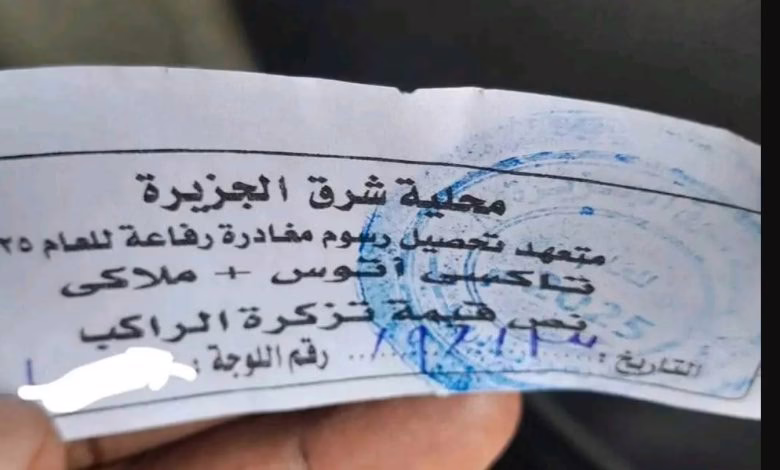 محلية شرق الجزيرة
متعهد تحصيل رسوم مغادرة رفاعة للعام ٢٥
تاكسي أتوس + ملاكى
نص قيمة تزكرة الراكب
التاريخ : رقم اللوحة :
2025